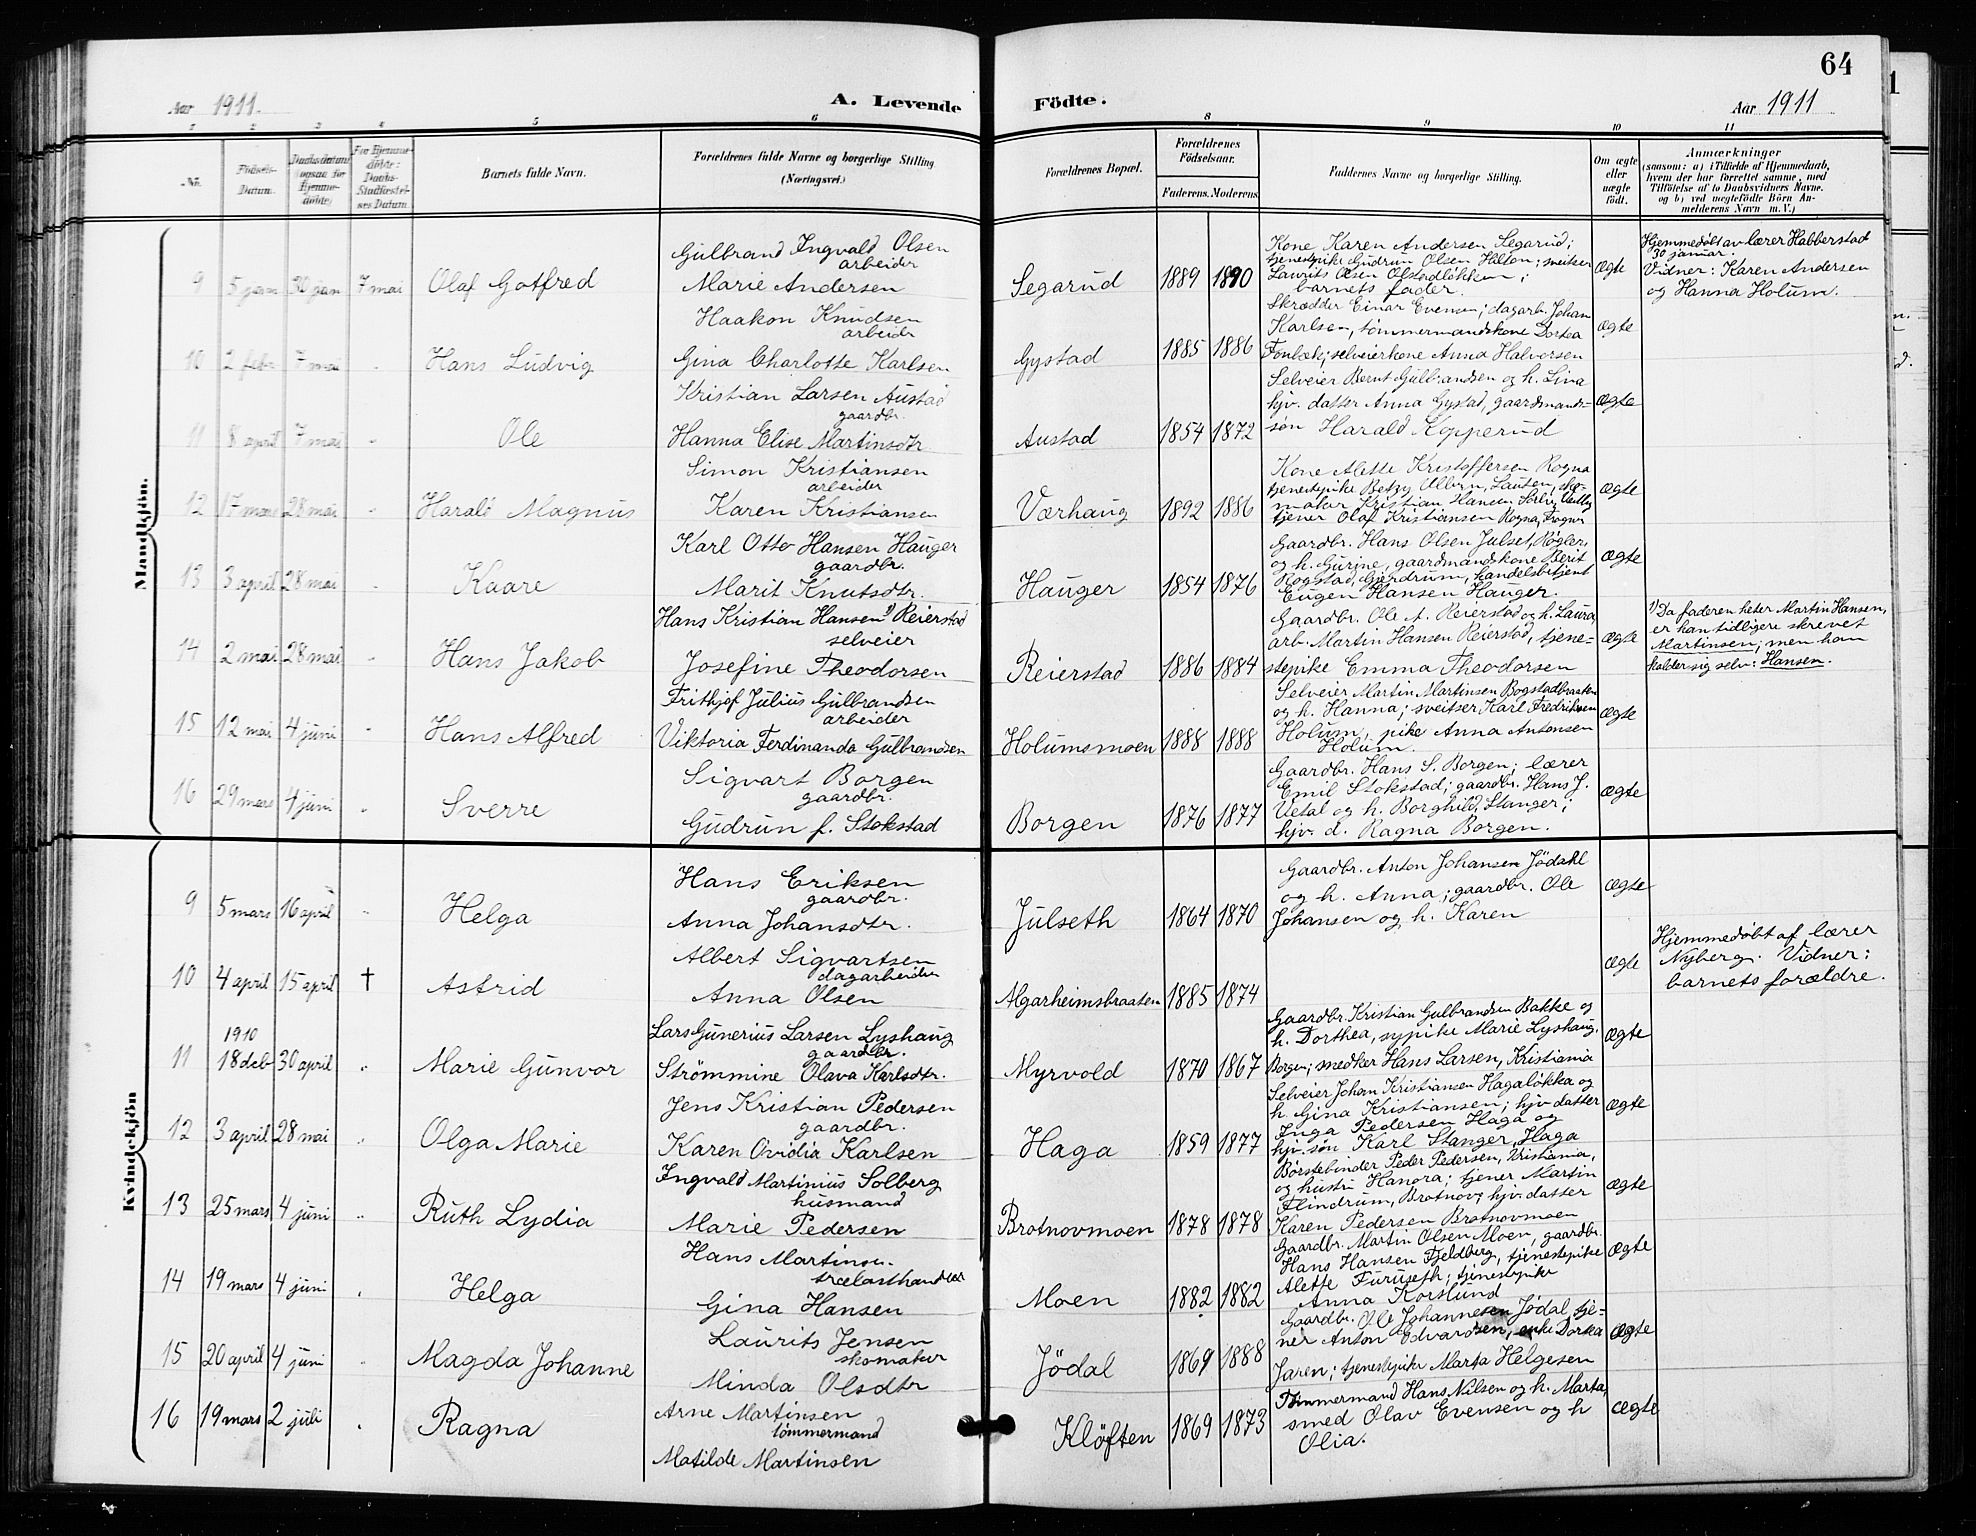 64
Aar 1911.
A. Levende Födte.
Aar 1911
1 2 3 4 5 6 8 9 10 11
No.
Födsels-Datum.
Daabsdatum (ogsaa for Hjemmedöbte)
For Hjemmedöbte: Daabs-Stadfæstelses Datum.
Barnets fulde Navn.
Forældrenes fulde Navne og borgerlige Stilling
(Næringsvei.)
Forældrenes Bopæl.
Forældrenes Födselsaar.
Faderens. Moderens.
Faddernes Navne og borgerlige Stilling.
Om ægte eller uægte födt.
Anmærkninger
(saasom: a) i Tilfælde af Hjemmedaab,
hvem der har forrettet samme, med
Tilföielse af to Daabsvidners Navne.
og b) ved uægtefödte Börn An-
melderens Navn m. V.)
Mandkjön.
9 5 jan 30 jan 7 mai Olaf Gotfred
Gulbrand Ingvald Olsen
arbeider
Marie Andersen
Segarud 1889 1890
Kone Karen Andersen Segarud;
tjenestpike Gudrun Olsen Hilton; sveitser
Laurits Olsen Olstadløkken;
barnets fader.
ægte
Hjemmedøbt av lærer Habberstad
30 januar.
Vidner: Karen Andersen
og Hanna Holum.
10 2 febr 7 mai " Hans Ludvig
Haakon Knudsen
arbeidr
Gina Charlotte Karlsen
Gystad 1885 1886
Skrædder Einar Evensen; dagarb. Johan
Karlsen, tømmermandskone Dortea
Fonbæk; selveierkone Anna Halvorsen
ægte
11 8 april 7 mai " Ole
Kristian Larsen Austad
gaardbr.
Hanna Elise Martinsdtr
Austad 1854 1872
Selveier Bernt Gulbrandsen og h. Lina
hjv. datter Anna Gystad, gaardmands-
søn Harald Kopperud
ægte
12 17 mars 28 mai " Harald Magnus
Simon Kristiansen
arbeider
Karen Kristiansen
Værhaug 1892 1886
Kone Alette Kristoffersen Rogna
tjenestpike Betzy Olborn, Lautsen, sko-
maker Kristian Hansen
tjener Olaf Kristiansen Rogna, Frogner
ægte
13 3 april 28 mai " Kaare
Karl Otto Hansen Hauger
gaardbr.
Marit Knutsdtr.
Hauger 1854 1876
Gaardbr. Hans Olsen Julset, Røgler,
og h. Gurine, gaardmandskone Berit
Rogstad, Gjerdrum, handelsbetjent
Eugen Hansen Hauger.
ægte
14 2 mai 28 mai " Hans Jakob
Hans Kristian Hansen 1) Reierstad
selveier
Josefine Theodorsen
Reierstad 1886 1884
Gaardbr. Ole A. Reierstad og h. Laura,
arb. Martin Hansen Reierstad, tjene-
stepike Emma Theodorsen
ægte
1) Da faderen heter Martin Hansen,
er han tidligere skrevet
Martinsen; men han
kalder sig selv: Hansen.
15 12 mai 4 juni " Hans Alfred
Frithjof Julius Gulbrandsen
arbeider
Viktoria Ferdinanda Gulbrandsen
Holumsmoen 1888 1888
Selveier Martin Martinsen Bogstadbraaten
og h. Hanna; sveitser Karl Fredriksen
Holum, pike Anna Antonsen
Holum.
ægte
16 29 mars 4 juni " Sverre
Sigvart Borgen
gaardbr.
Gudrun f. Stokstad
Borgen 1876 1877
Gaardbr. Hans S. Borgen; lærer
Emil Stokstad; gaardbr. Hans J.
Vetal og h. Borghild Stanger;
hjv. d. Ragna Borgen.
ægte
Kvindekjön
9 5 mars 16 april " Helga
Hans Eriksen
gaardbr.
Anna Johansdtr.
Julseth 1864 1870
Gaardbr. Anton Johansen Jödahl
og h. Anna; gaardbr. Ole
Johansen og h. Karen
ægte
10 4 april 15 april † Astrid
Albert Sigvartsen
dagarbeider
Anna Olsen
Algarheimsbraaten 1885 1874
ægte
Hjemmedøbt af lærer
Nyberg. Vidner:
barnets forældre.
1910
11 18 deb 30 april " Marie Gunvor
Lars Gunerius Larsen Lyshaug
gaardbr.
Strømmine Olava Karlsdtr.
Myrvold 1870 1867
Gaardbr. Kristian Gulbrandsen Bakke og
h. Dorthea, sypike Marie Lyshaug,
Borgen; snedker Hans Larsen, Kristiania
ægte
12 3 april 28 mai " Olga Marie
Jens Kristian Pedersen
gaardbr.
Karen Ovidia Karlsen
Haga 1859 1877
Selveier Johan Kristiansen Hagaløkka og
h. Gina Kristiansen; hjv datter
Inga Pedersen Haga og
hjv. søn Karl Stanger, Haga
ægte
13 25 mars 4 juni " Ruth Lydia
Ingvald Martinius Solberg
husmand
Marie Pedersen
Brotnovmoen 1878 1878
Børstebinder Peder Pedersen, Kristiania,
og hustru Hanora; tjener Martin
Flindrum, Brotnov; hjv. datter
Karen Pedersen Brotnovmoen
ægte
14 19 mars 4 juni " Helga
Hans Martinsen.
trælasthandler
Gina Hansen
Moen 1882 1882
Gaardbr. Martin Olsen Moen, gaardbr.
Hans Hansen Fjeldberg, tjenestepike
Alette Furuseth; tjenestepike
Anna Korslund
ægte
15 20 april 4 juni " Magda Johanne
Laurits Jensen
skomaker
Minda Olsdtr
Jödal 1869 1888
Gaardbr. Ole Johannesen Jødal, tje-
ner Anton Edvardsen, enke Dortea
Jaren; tjenestpike Marta Helgesen
ægte
16 19 mars 2 juli " Ragna
Arne Martinsen
tömmermand
Matilde Martinsen
Kløften 1869 1873
Tømmermand Hans Nilsen og h. Marta,
smed Olav Evensen og h
Olia.
ægte